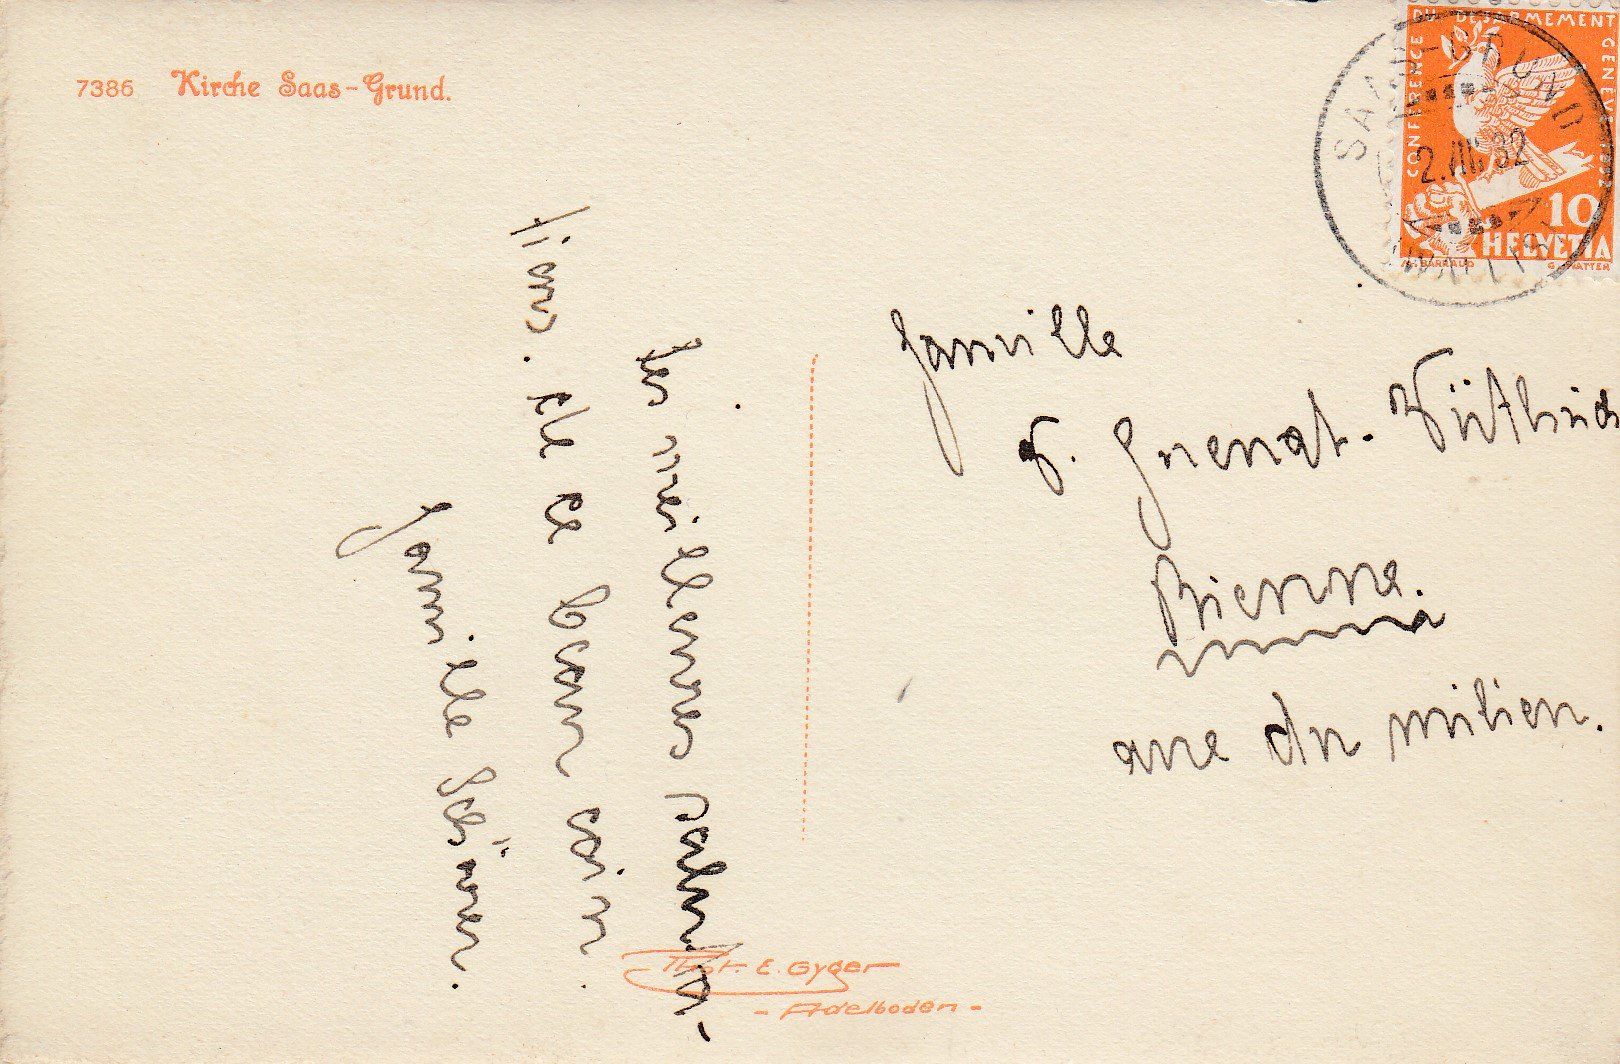 7386 Kirche Saas-Grund.
CONFERENCE DU DESARMEMENT GENEVE 1932
10
HELVETIA
SAAS-GRUND
2.VIII.32
(WALLIS)
Les meilleures saluta-
tions de ce beau coin.
Famille
Famille
F. Grienat-
Bienne.
rue du milieu.
Phot. E. Gyger
- Adelboden -